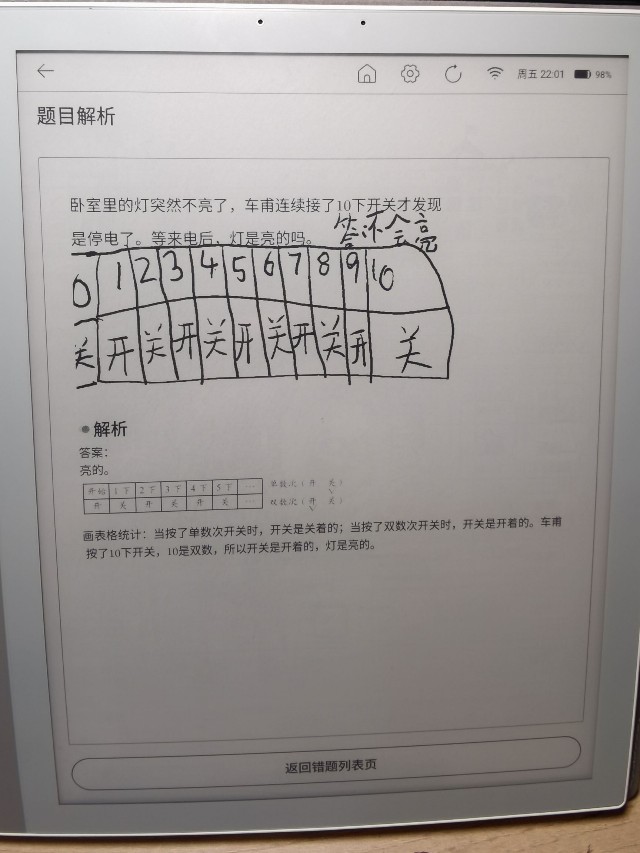 周五 22:01 98%
题目解析
卧室里的灯突然不亮了，车甫连续接了10下开关才发现
是停电了。等来电后，灯是亮的吗。 答:不会亮
0 1 2 3 4 5 6 7 8 9 10
关 开 关 开 关 开 关 开 关 开 关
解析
答案：
亮的。
开始 1下 2下 3下 4下 5下 … 单数次（开 关）
开 关 开 关 开 关 … 双数次（开 关）
画表格统计：当按了单数次开关时，开关是关着的；当按了双数次开关时，开关是开着的。车甫
按了10下开关，10是双数，所以开关是开着的，灯是亮的。
返回错题列表页